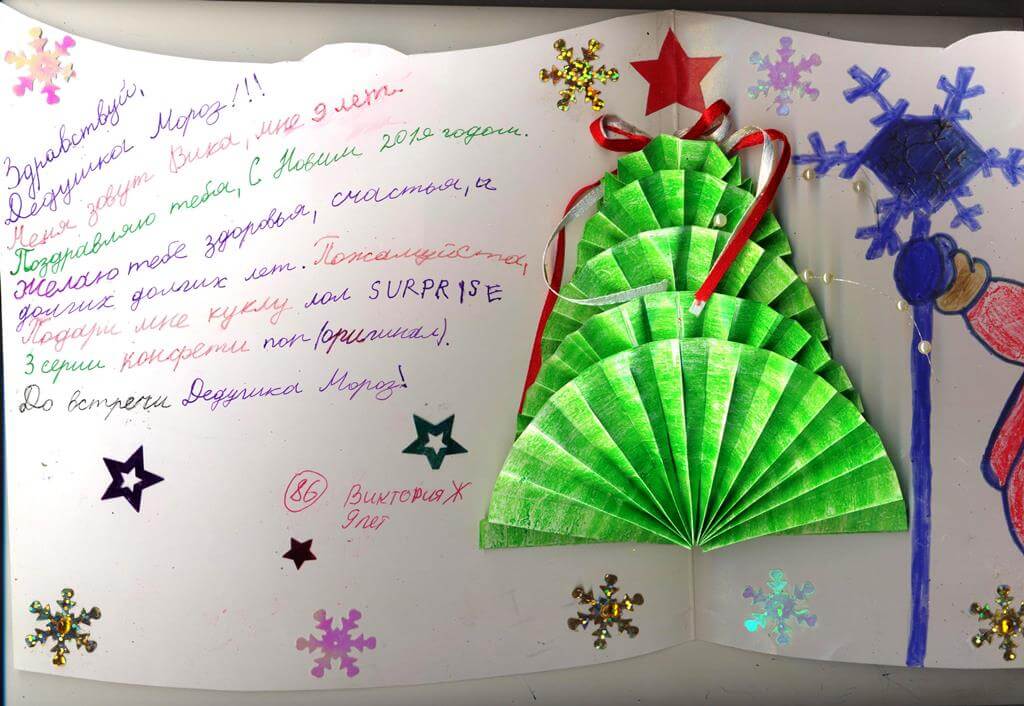 Здравствуй,
Дедушка Мороз!!!
Меня зовут Вика, мне 9 лет.
Поздравляю тебя, С Новим 2019 годом.
Желаю тебе здоровья, счастья, и
долгих долгих лет. Пожалуйста,
Подари мне куклу лол SURPRISE
3 серии конфети поп (оригинал).
До встречи Дедушка Мороз!
86 Виктория Ж
9 лет